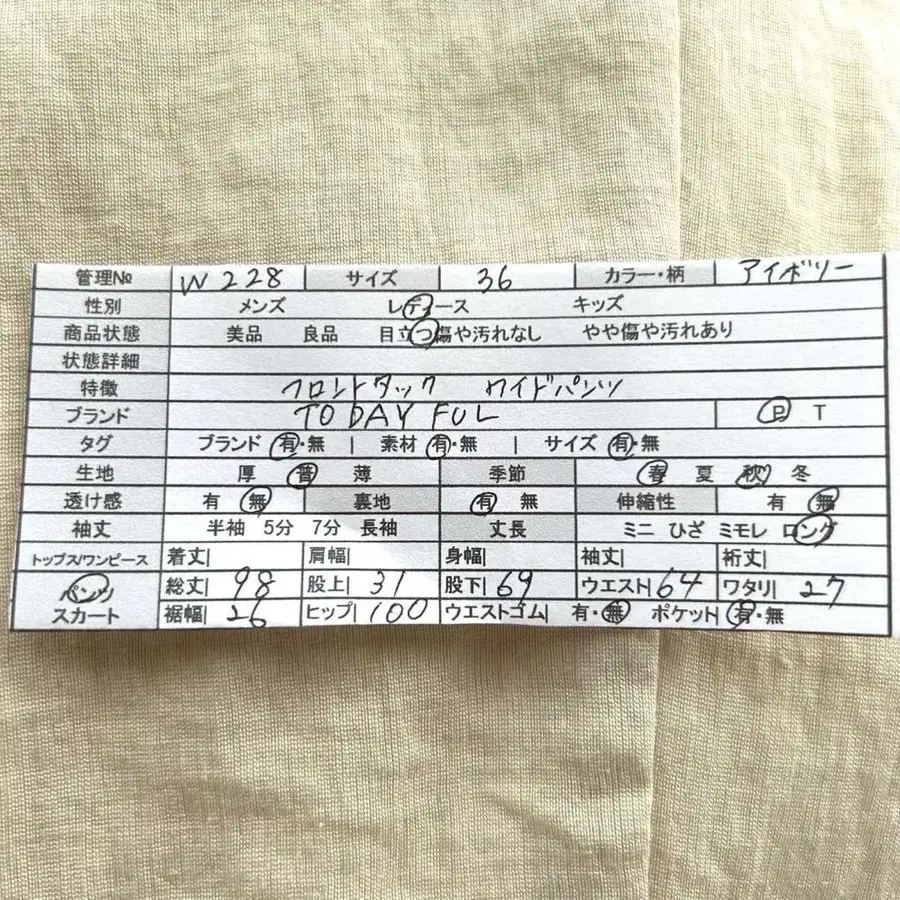 管理№ W228 サイズ 36 カラー・柄 アイボリー
性別 メンズ レディース キッズ
商品状態 美品 良品 目立つ傷や汚れなし やや傷や汚れあり
状態詳細
特徴 フロントタック ワイドパンツ
ブランド TODAYFUL P T
タグ ブランド 有・無 | 素材 有・無 | サイズ 有・無
生地 厚 普 薄 季節 春 夏 秋 冬
透け感 有 無 裏地 有 無 伸縮性 有 無
袖丈 半袖 5分 7分 長袖 丈長 ミニ ひざ ミモレ ロング
トップス/ワンピース 着丈| 肩幅| 身幅| 袖丈| 裄丈|
パンツ 総丈| 98 股上| 31 股下| 69 ウエスト| 64 ワタリ| 27
スカート 裾幅| 26 ヒップ| 100 ウエストゴム| 有・無 ポケット| 有・無